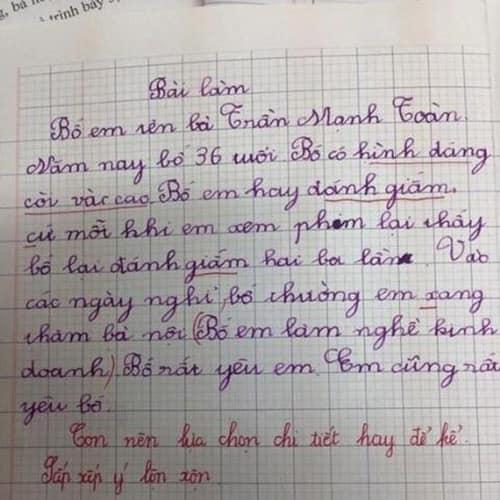 trình bày
Bài làm
Bố em tên là Trần Mạnh Toàn.
Năm nay bố 36 tuổi. Bố có hình dáng
còi và cao. Bố em hay đánh giấm,
cứ mỗi khi em xem phim lại thấy
bố lại đánh giấm hai ba lần. Vào
các ngày nghỉ, bố thường em xang
thăm bà nội (Bố em làm nghề kinh
doanh). Bố rất yêu em. Em cũng rất
yêu bố.
Con nên lựa chọn chi tiết hay để kể.
Sắp xếp ý lộn xộn